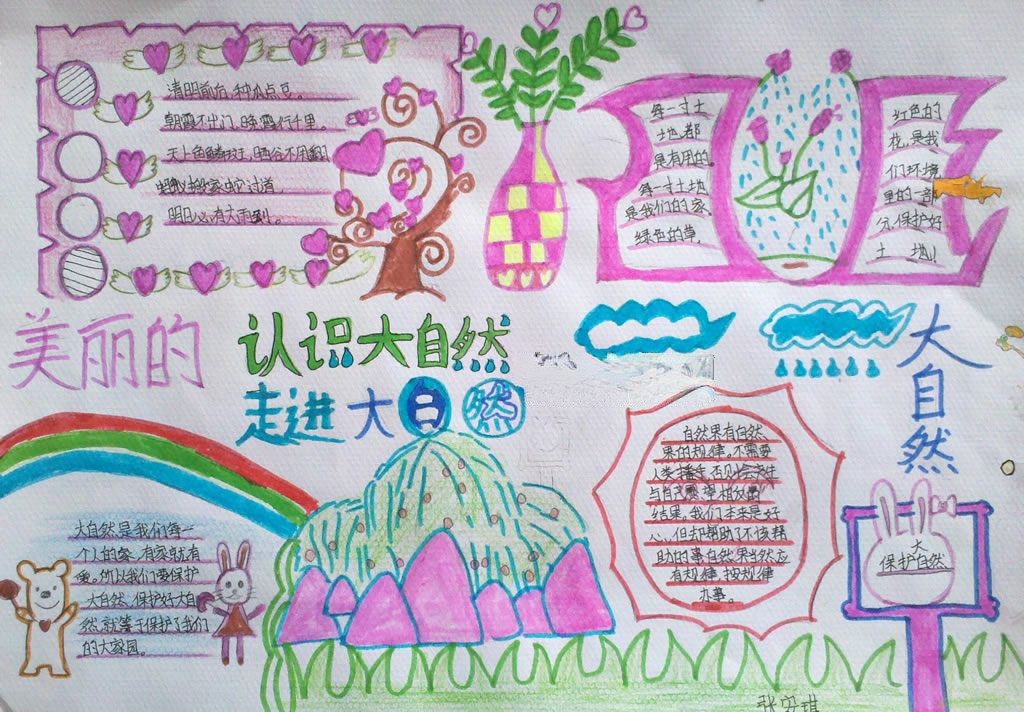 清明前后,种瓜点豆。
朝霞不出门,晚霞行千里。
天上鱼鳞斑,晒谷不用翻
蚂蚁搬家蛇过道
明日必有大雨到。
每一寸土
地,都
是有用的。
每一寸土地
是我们的家。
绿色的草,
红色的
花,是我
们环境
里的一部
分,保护好
土地!
美丽的
认识大自然
走进大自然
大自然
大自然,是我们每一
个人的家,有家就有
爱。所以我们要保护
大自然,保护好大自
然,就等于保护了我们
的大家园。
自然果有自然
果的规律。不需要
人类播生,否则会产生
与自己愿望相反的
结果。我们本来是好
心,但却帮助了不该帮
助的事自然果当然应
有规律,按规律
办事。
大
保护自然
张安琪